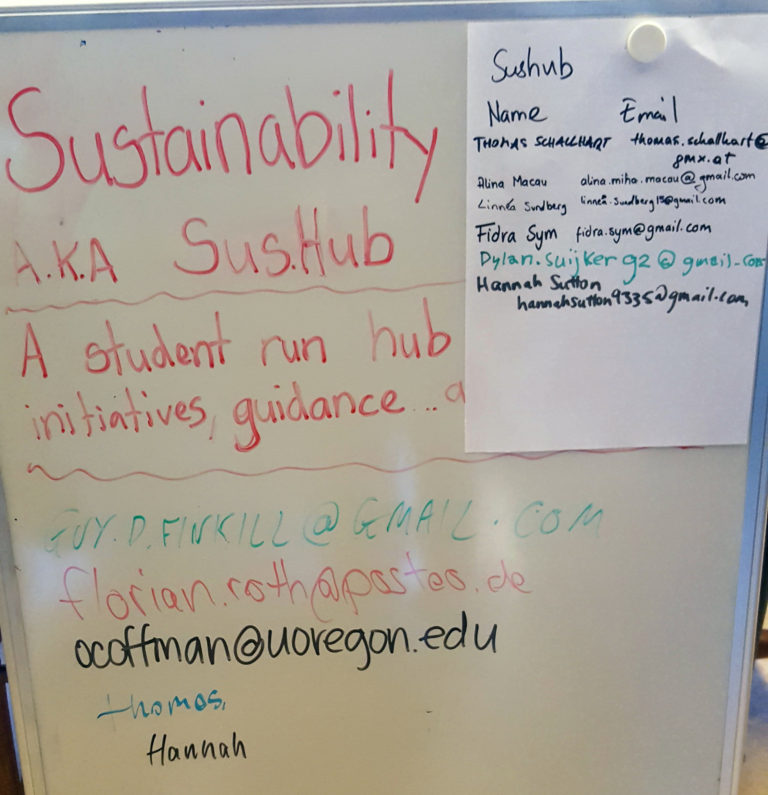 Sustainability
A.K.A Sus.Hub
A student run hub
initiatives, guidance... a
GUY.D.FINKILL@GMAIL.COM
florian.roth@posteo.de
ocoffman@uoregon.edu
thomas,
Hannah
Sushub
Name Email
THOMAS SCHALLHART thomas.schalhart@
gmx.at
Alina Macau alina.miha.macau@gmail.com
Linnéa Sundberg linnea.sundberg15@gmail.com
Fidra Sym fidra.sym@gmail.com
Dylan.suijker92@gmail.com
Hannah Sutton
hannahsutton9335@gmail.com